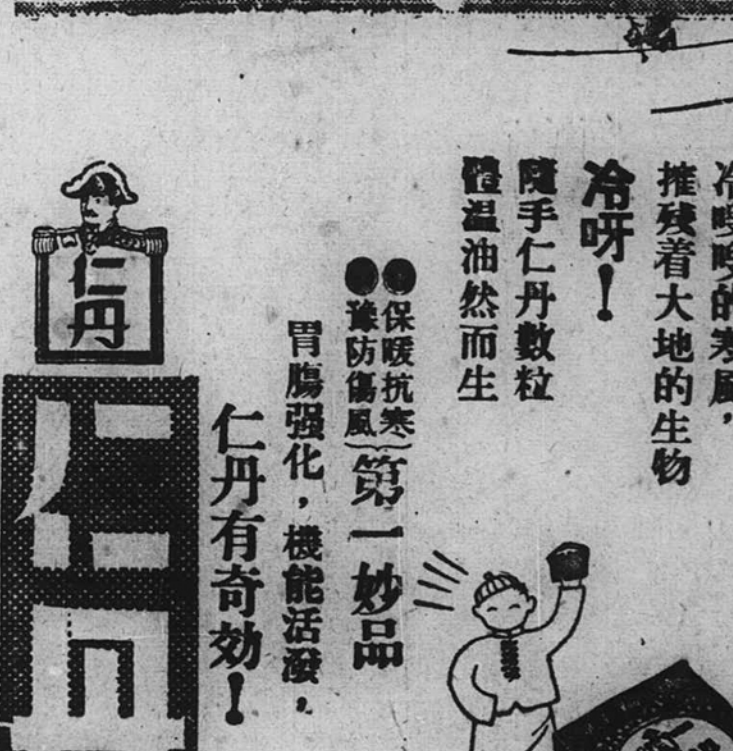 冷嗖嗖的寒風，
摧残着大地的生物
冷呀！
隨手仁丹數粒
體温油然而生
●保暖抗寒
●豫防傷風
第一妙品
胃腸强化，機能活潑，
仁丹有奇効！
仁丹
仁丹